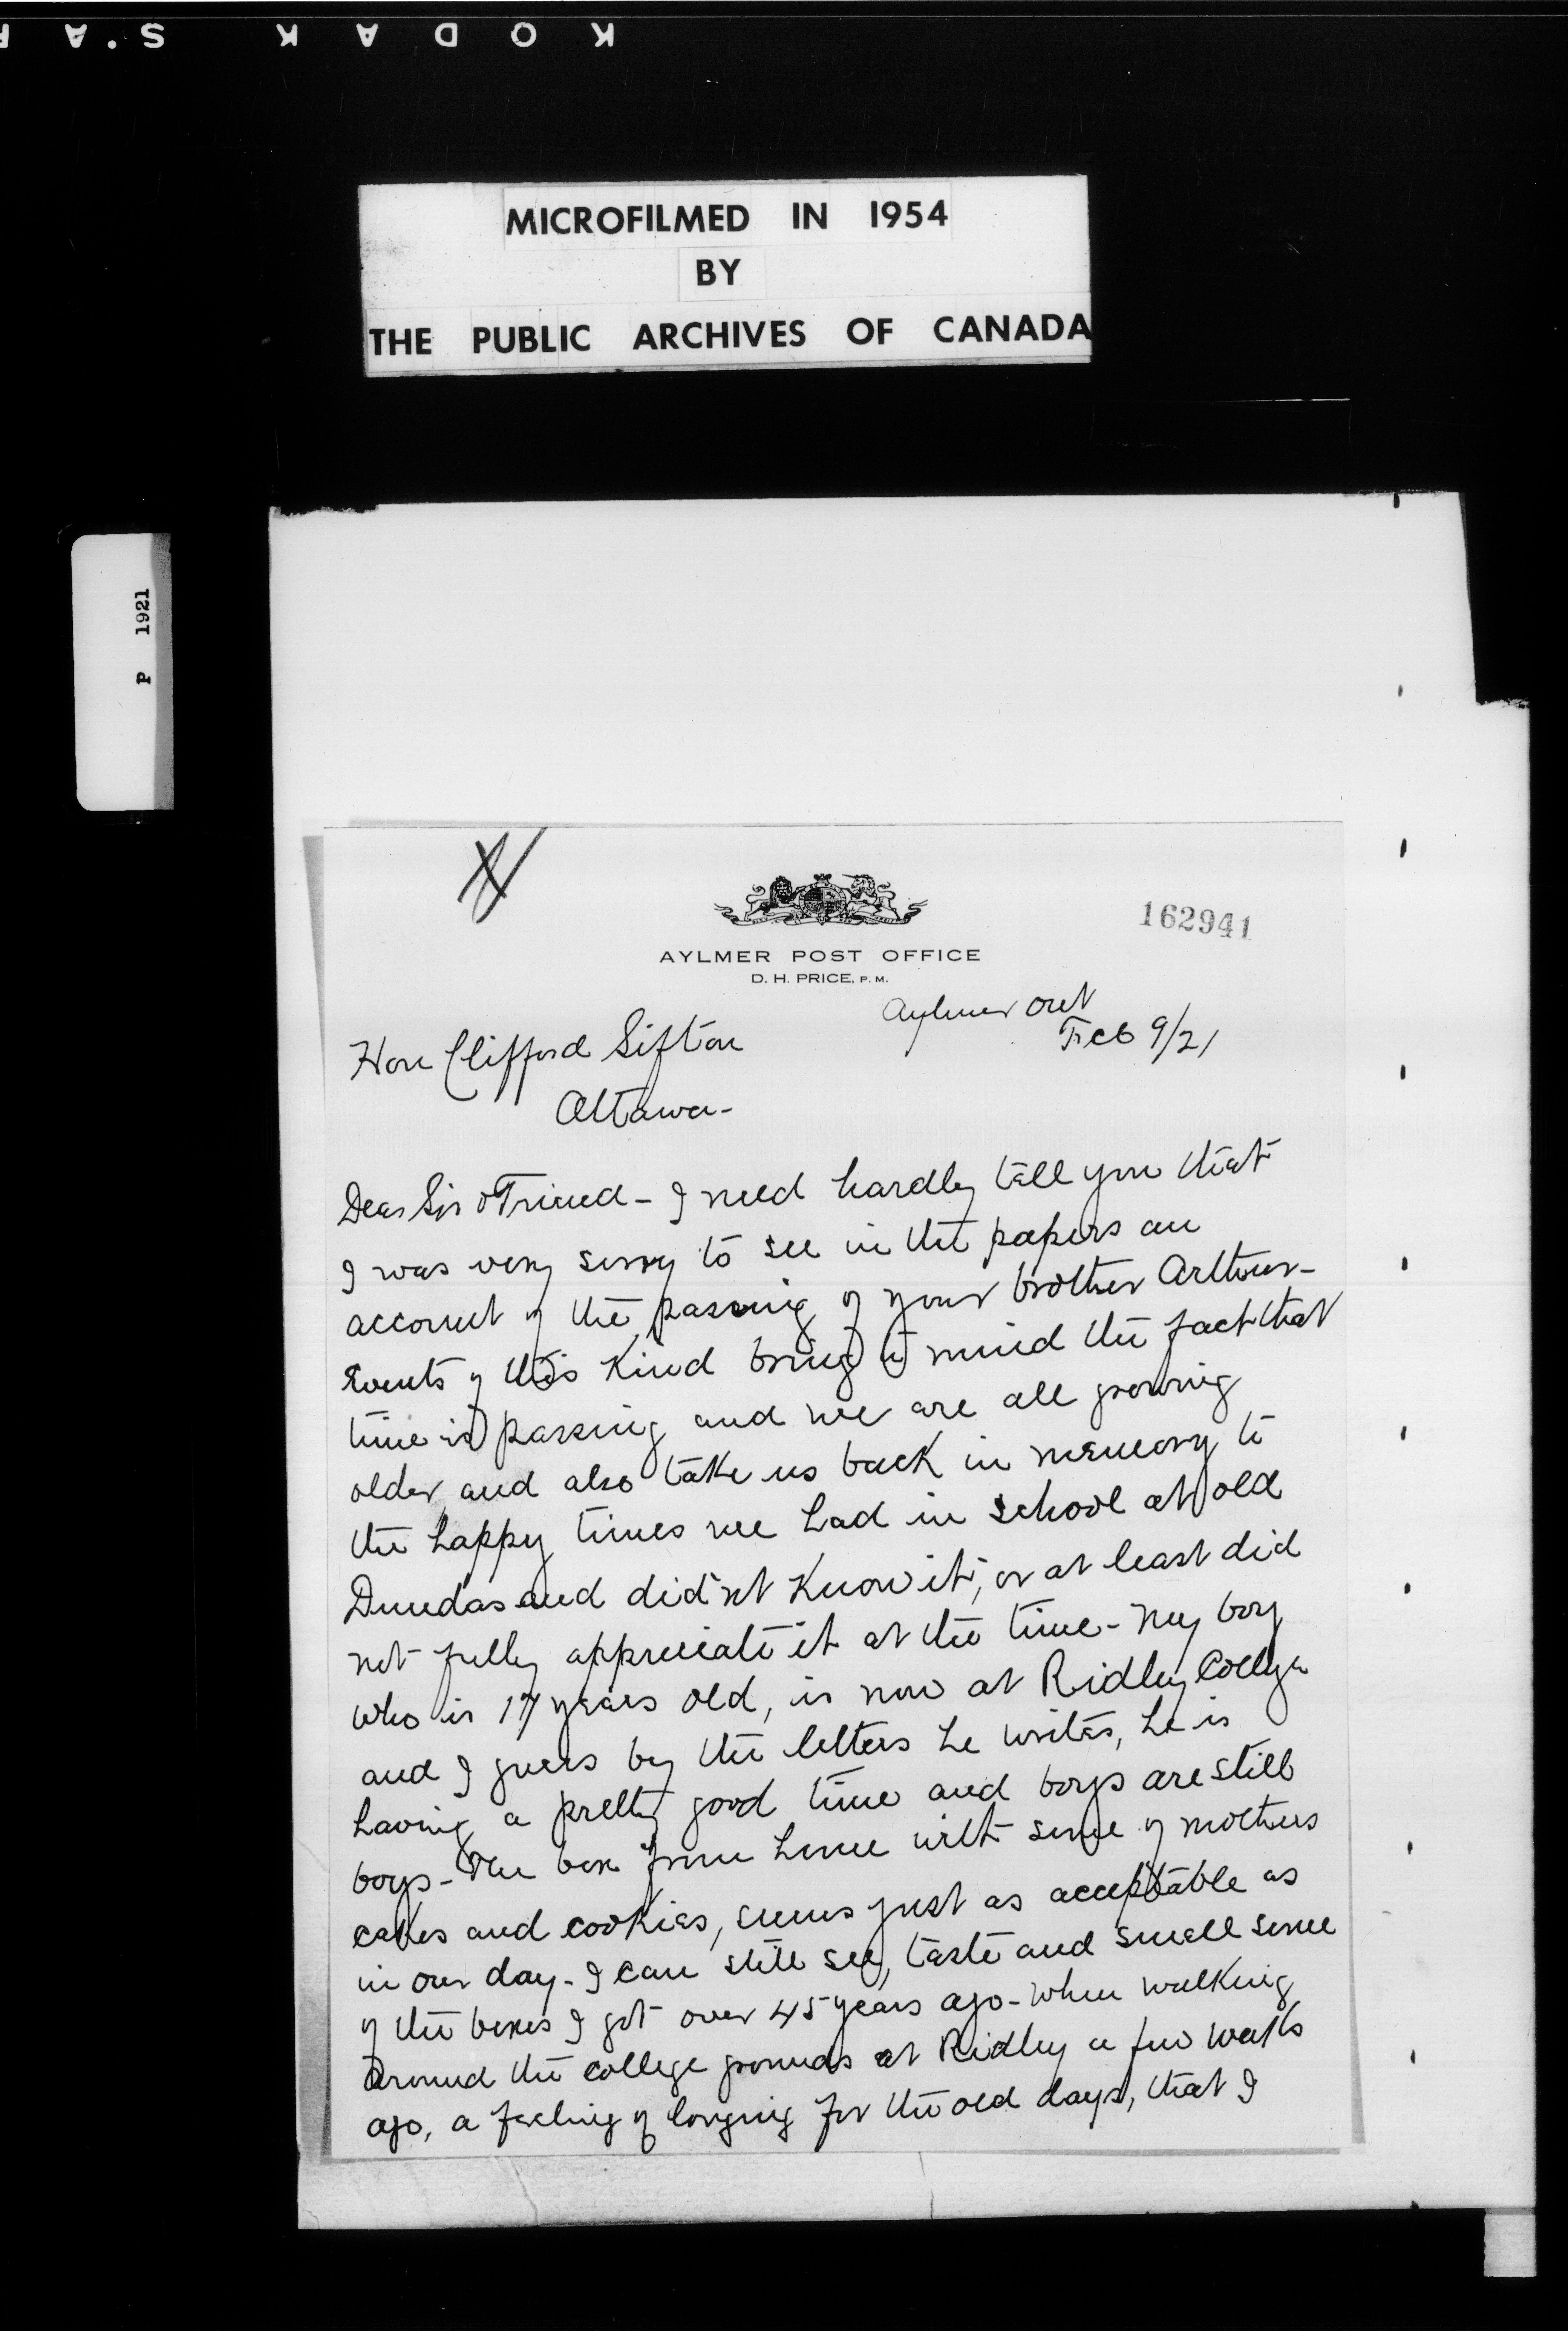 KODAK S.A
MICROFILMED IN 1954
BY
THE PUBLIC ARCHIVES OF CANADA
P 1921
162941
AYLMER POST OFFICE
D. H. PRICE, P. M.
Aylmer Ont
Feb 9/21
Hon Clifford Sifton
Ottawa-
Dear Sir & Friend - I need hardly tell you that
I was very sorry to see in the papers an
account of the passing of your brother Arthur-
Events of this kind bring to mind the fact that
time is passing and we are all growing
older and also take us back in memory to
the happy times we had in school at old
Dundas and did'nt know it, or at least did
not fully appreciate it at the time - My boy
who is 17 years old, is now at Ridley College
and I guess by the letters he writes, he is
having a pretty good time and boys are still
boys - The box from home with some of mothers
cakes and cookies, seems just as acceptable as
in our day - I can still see, taste and smell some
of the boxes I got over 45 years ago - When walking
around the college grounds at Ridley a few weeks
ago, a feeling of longing for the old days, that I